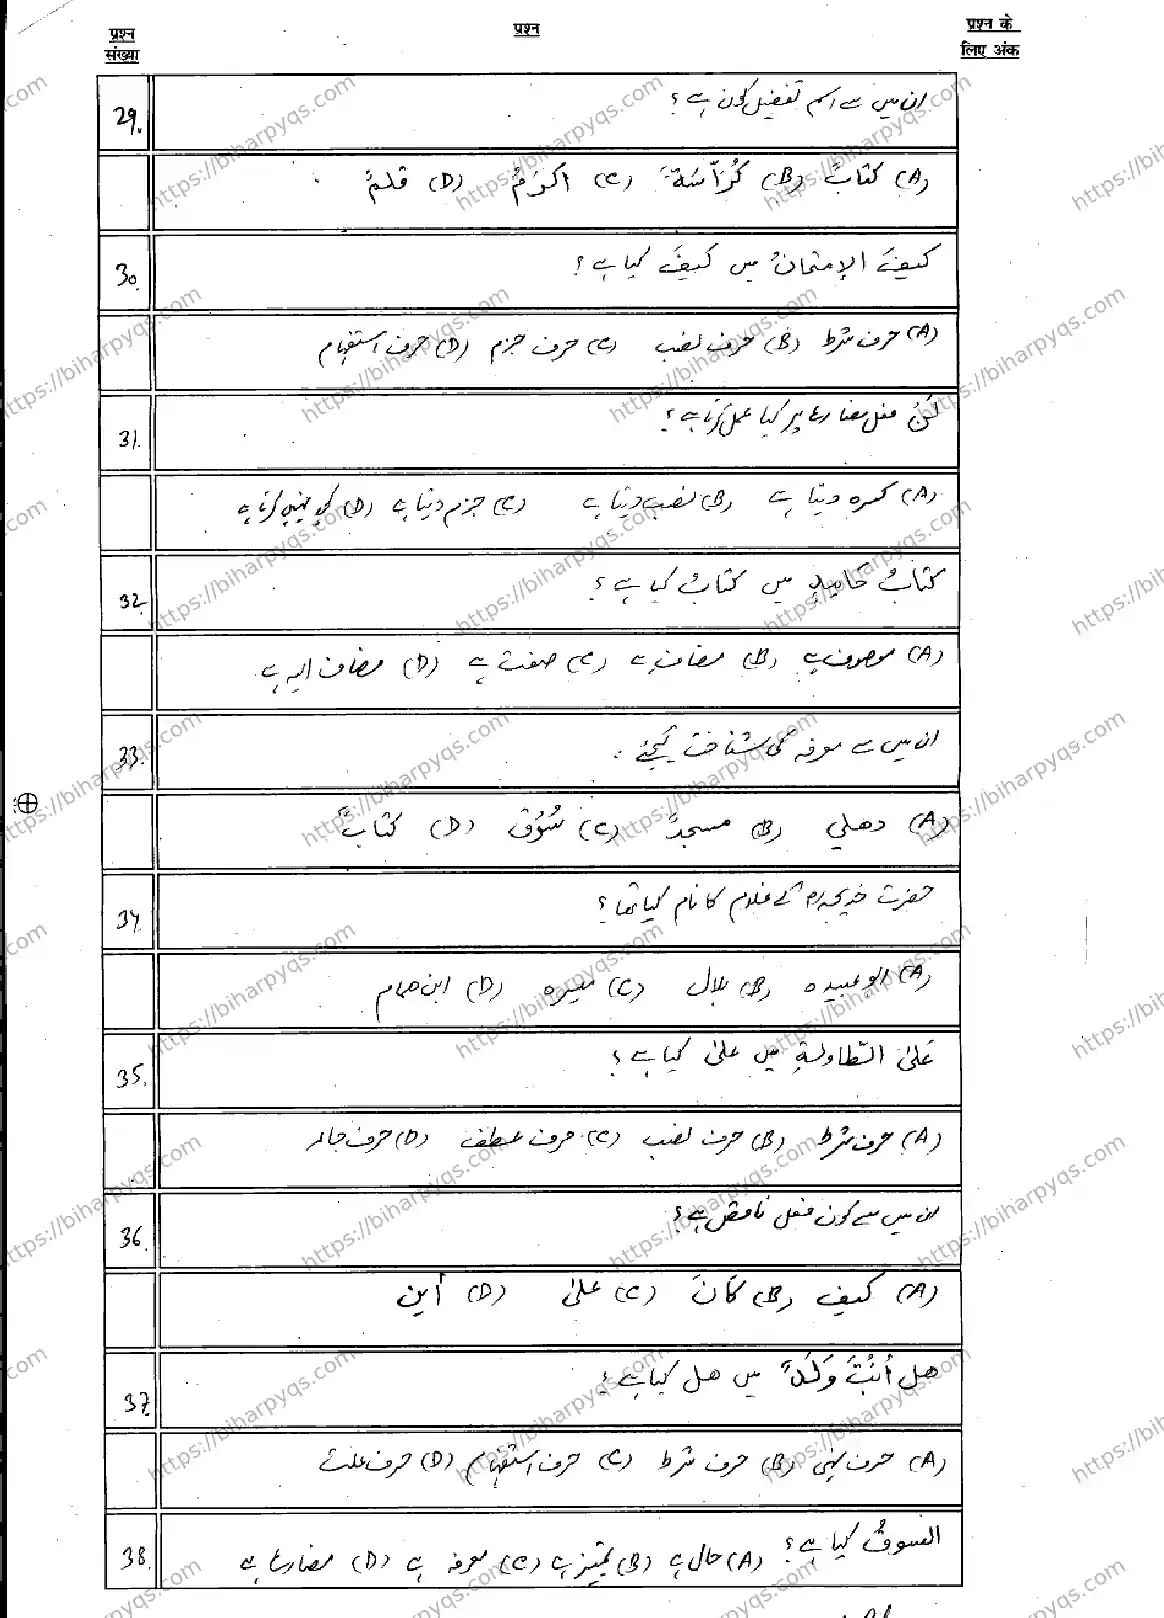 प्रश्न संख्या
प्रश्न
प्रश्न के लिए अंक
29.
ان میں سے اسم تفضیل کون ہے؟
(A) کتابٌ (B) کُرَّاسَةٌ (C) اکرَمُ (D) قلمٌ
30.
کیفَ الإمتحانُ میں کیفَ کیا ہے؟
(A) حرف شرط (B) حرف نصب (C) حرف جزم (D) حرف استفہام
31.
لَنْ فعل مضارع پر کیا عمل کرتا ہے؟
(A) کسرہ دیتا ہے (B) نصب دیتا ہے (C) جزم دیتا ہے (D) کچھ نہیں کرتا ہے
32.
کتابُ حامِدٍ میں کتابُ کیا ہے؟
(A) موصوف ہے (B) مضاف ہے (C) صفت ہے (D) مضاف الیہ ہے
33.
ان میں سے معرفہ کی شناخت کیجئے۔
(A) دھلي (B) مسجدٌ (C) سُوْق (D) کتابٌ
34.
حضرت خدیجہ رض کے غلام کا نام کیا تھا؟
(A) ابو عبیدہ (B) بلال (C) میسرہ (D) ابن ھمام
35.
عَلیٰ الطّاولةِ میں علیٰ کیا ہے؟
(A) حرف شرط (B) حرف نصب (C) حرف عطف (D) حرف جار
36.
ان میں سے کون فعل ناقص ہے؟
(A) کیف (B) کَانَ (C) علیٰ (D) أین
37.
ھل أنتَ وَلَدٌ میں ھل کیا ہے؟
(A) حرف نہی (B) حرف شرط (C) حرف استفہام (D) حرف علت
38.
السوقُ کیا ہے؟ (A) حال ہے (B) تمیز ہے (C) معرفہ ہے (D) مضارع ہے
https://biharpyqs.com